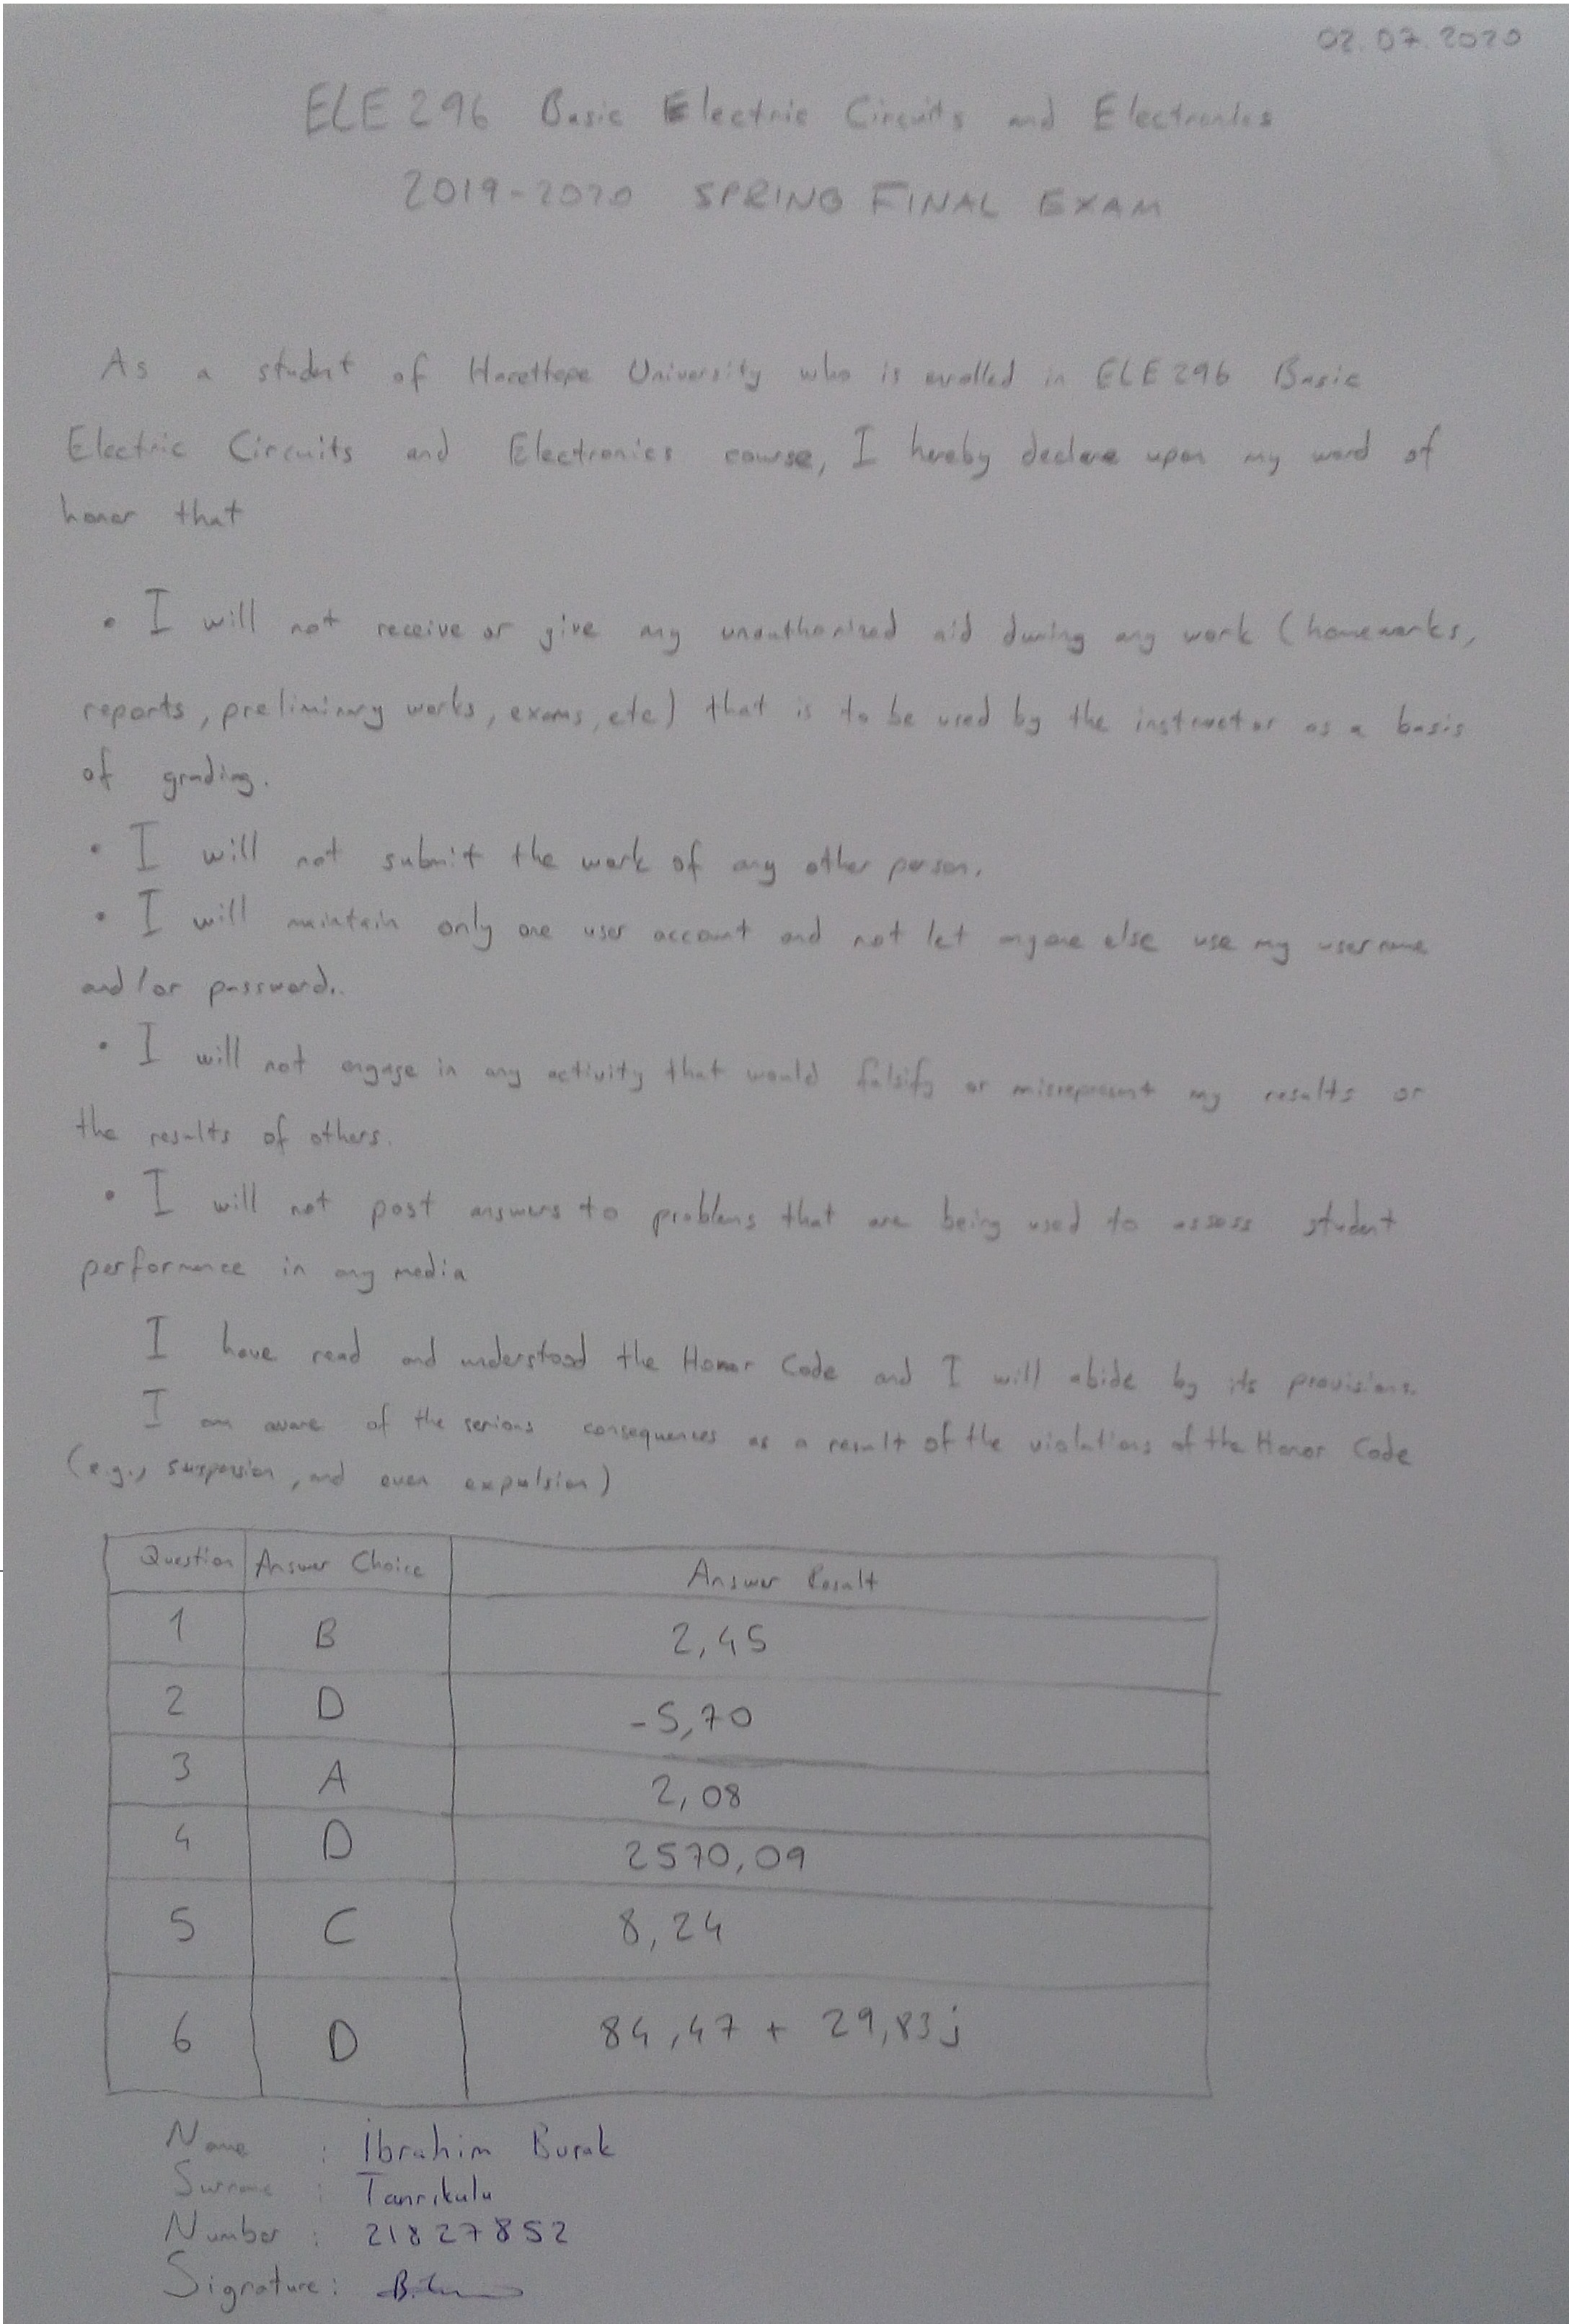 02.07.2020
ELE296 Basic Electric Circuits and Electronics
2019-2020 SPRING FINAL EXAM
As a student of Hacettepe University who is enrolled in ELE296 Basic
Electric Circuits and Electronics course, I hereby declare upon my word of
honor that
• I will not receive or give any unauthorized aid during any work (homeworks,
reports, preliminary works, exams, etc) that is to be used by the instructor as a basis
of grading.
• I will not submit the work of any other person.
• I will maintain only one user account and not let anyone else use my username
and/or password.
• I will not engage in any activity that would falsify or misrepresent my results or
the results of others.
• I will not post answers to problems that are being used to assess student
performance in any media
I have read and understood the Honor Code and I will abide by its provisions.
I am aware of the serious consequences as a result of the violations of the Honor Code
(e.g., suspension, and even expulsion)
Question Answer Choice Answer Result
1 B 2,45
2 D -5,70
3 A 2,08
4 D 2570,09
5 C 8,24
6 D 84,47 + 29,83j
Name : İbrahim Burak
Surname : Tanrıkulu
Number : 21827852
Signature: